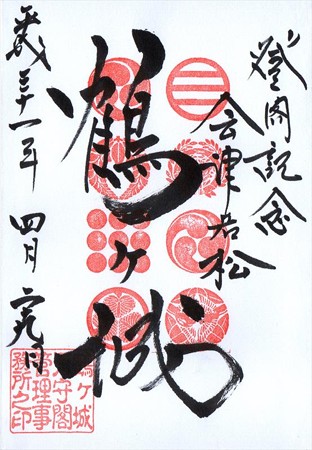 登閣記念
会津若松
鶴ヶ城
平成三十一年 四月
鶴ヶ城
天守閣
管理事
務所之印